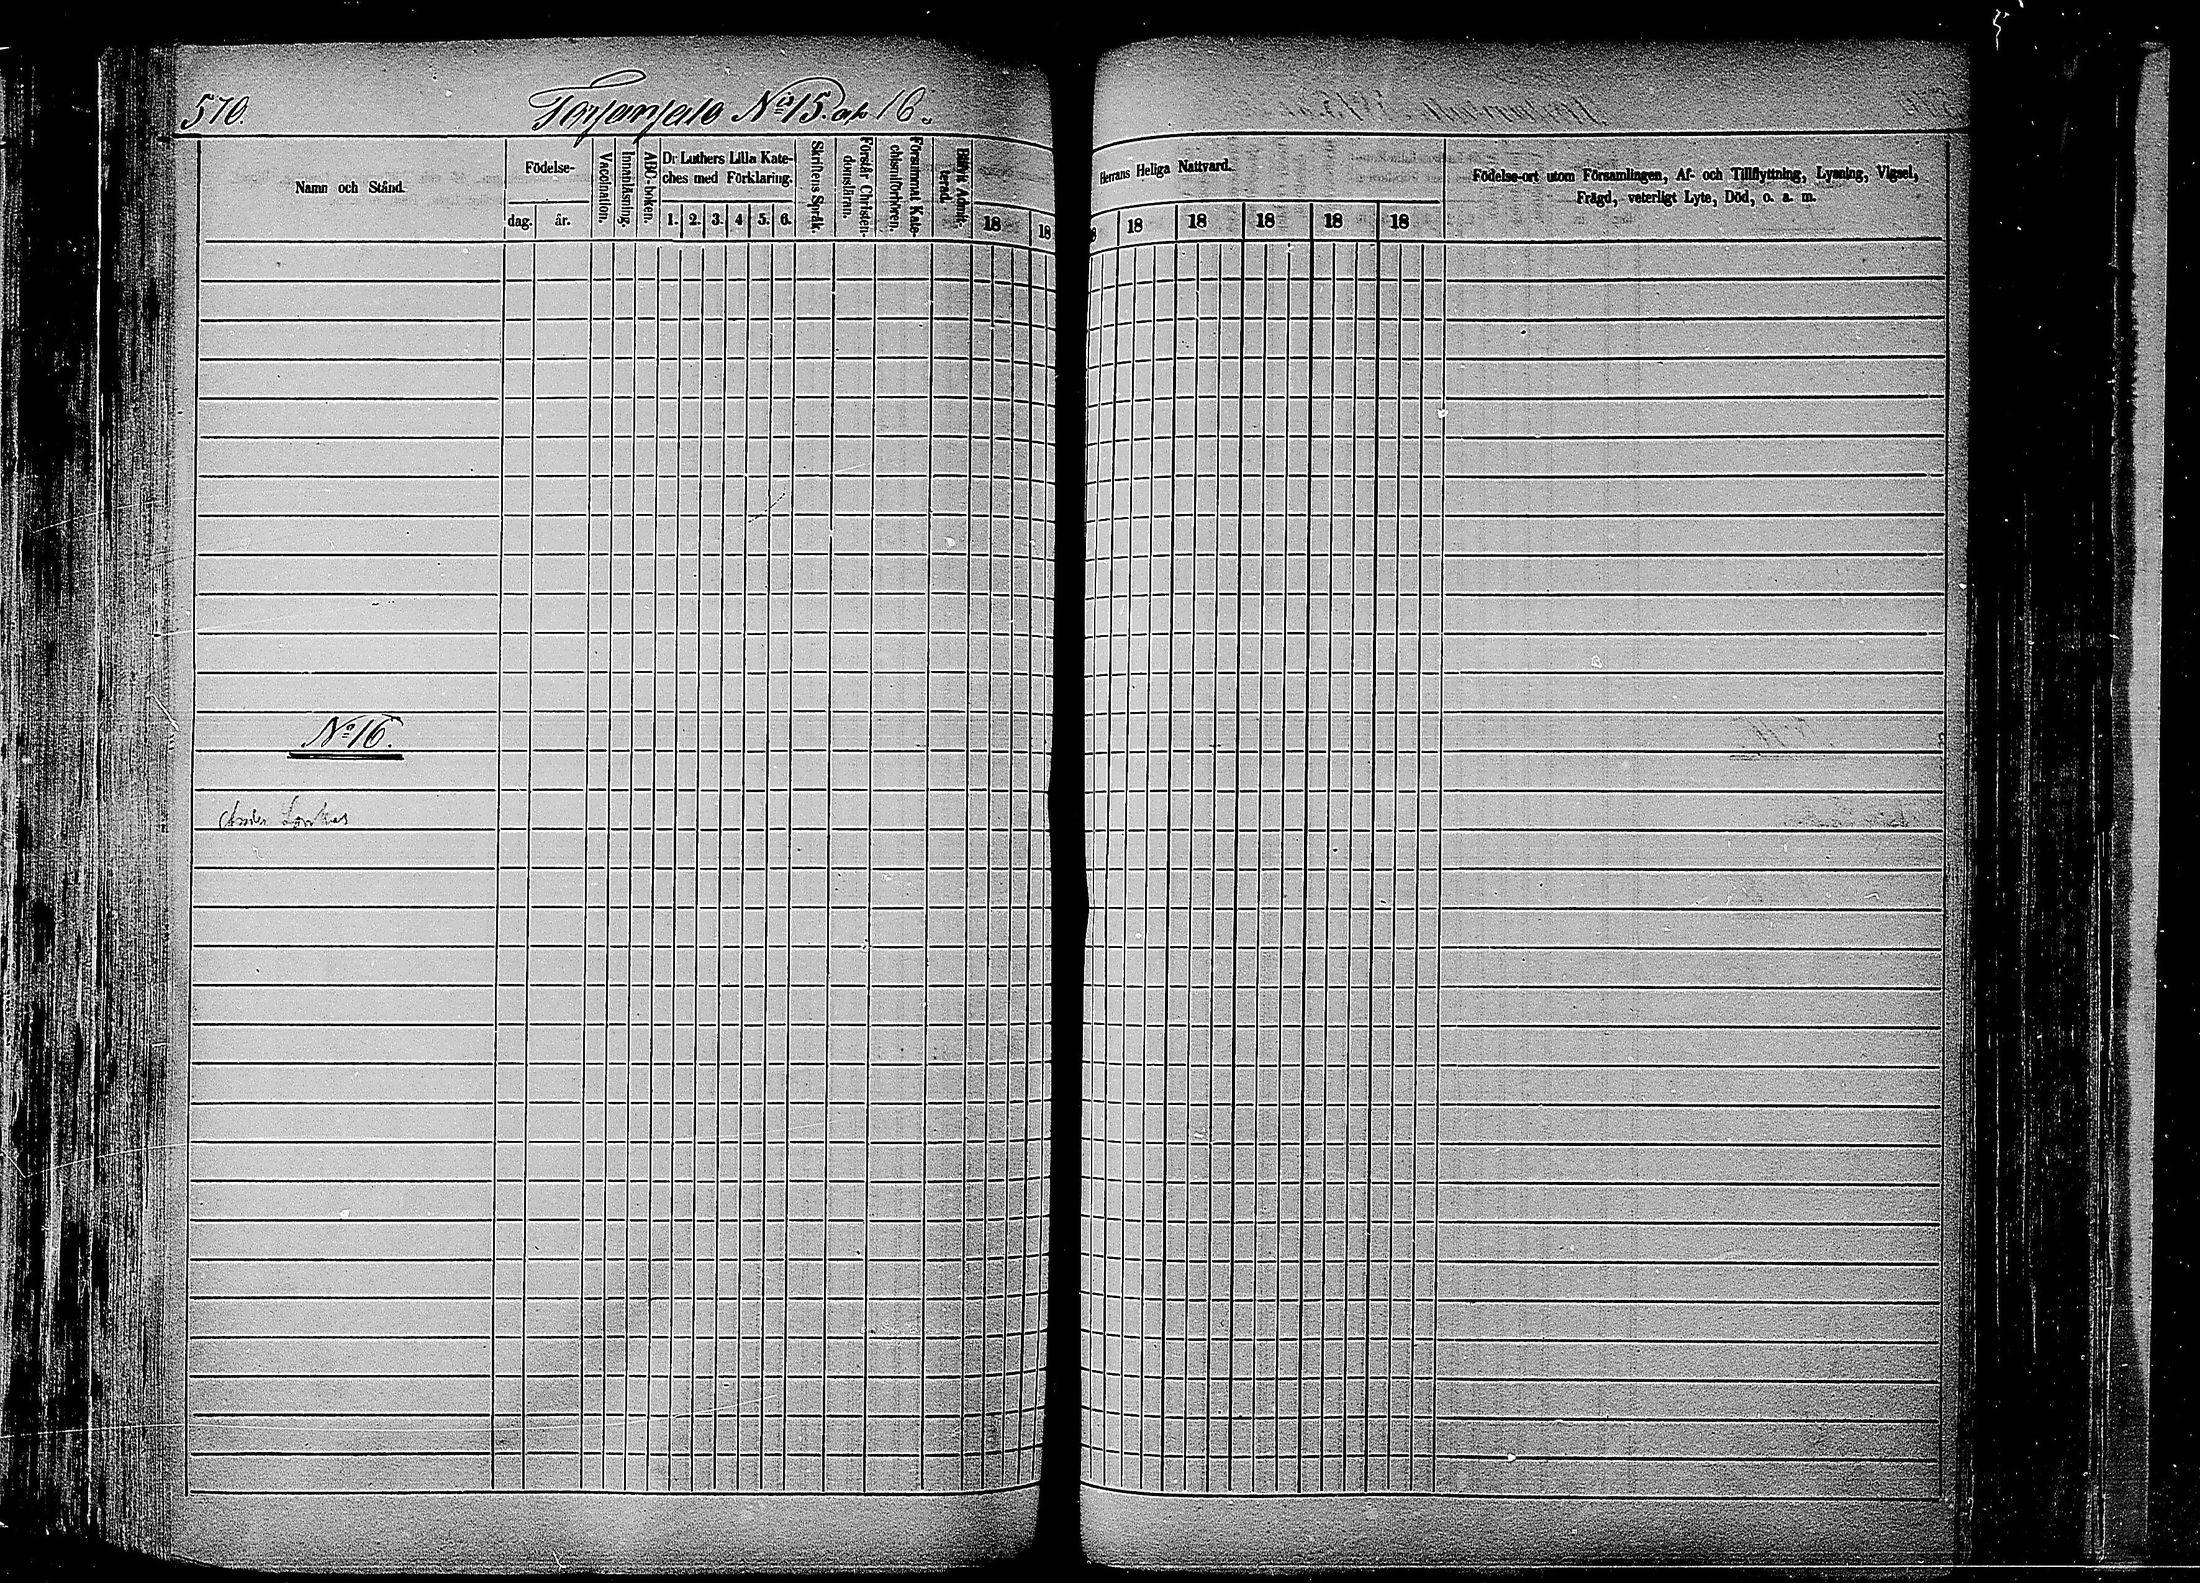 570.
No 15. och 16.
Namn och Stånd.
Födelse-
dag.
år.
Vaccination.
Innanläsning.
ABC-boken.
Dr Luthers Lilla Kate-
ches med Förklaring.
1. 2. 3. 4 5. 6.
Skriftens Språk.
Förstår Christen-
domsläran.
Försummat Kate-
chismiförhören.
Blifvit Admit-
terad.
18 18
Herrans Heliga Nattvard.
18 18 18 18 18
Födelse-ort utom Församlingen, Af- och Tillflyttning, Lysning, Vigsel,
Frägd, veterligt Lyte, Död, o. s. m.
No 16.